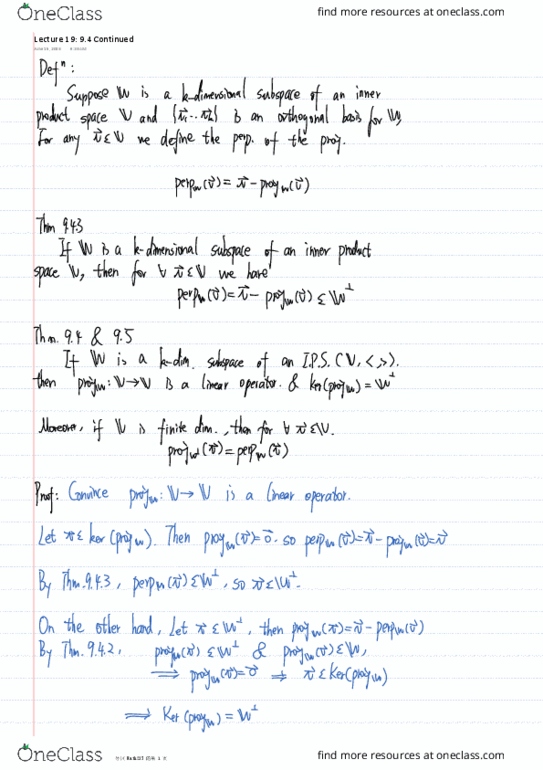 OneClass
find more resources at oneclass.com
Lecture 19: 9.4 Continued
Defⁿ:
Suppose 𝕎 is a k-dimensional subspace of an inner
product space 𝕍 and is an orthogonal basis for 𝕎,
For any v⃗ ∈ 𝕍 we define the perp. of the proj.
perp_𝕎(v⃗) = v⃗ - proj_𝕎(v⃗)
Thm 9.4.3
If 𝕎 is a k-dimensional subspace of an inner product
space 𝕍, then for ∀ v⃗ ∈ 𝕍 we have
perp_𝕎(v⃗) = v⃗ - proj_𝕎(v⃗) ∈ 𝕎^⊥
Thm. 9.4 & 9.5
If 𝕎 is a k-dim. subspace of an I.P.S. (𝕍, < , >).
then proj_𝕎: 𝕍 → 𝕍 is a linear operator. & ker(proj_𝕎) = 𝕎^⊥
Moreover, if 𝕍 is finite dim., then for ∀ v⃗ ∈ 𝕍.
proj_𝕎^⊥(v⃗) = perp_𝕎(v⃗)
Proof: Convince proj_𝕎: 𝕍 → 𝕍 is a linear operator.
Let v⃗ ∈ ker(proj_𝕎). Then proj_𝕎(v⃗) = 0⃗. so perp_𝕎(v⃗) = v⃗ - proj_𝕎(v⃗) = v⃗
By Thm. 9.4.3, perp_𝕎(v⃗) ∈ 𝕎^⊥, so v⃗ ∈ 𝕎^⊥.
On the other hand, Let v⃗ ∈ 𝕎^⊥, then proj_𝕎(v⃗) = v⃗ - perp_𝕎(v⃗)
By Thm. 9.4.2, proj_𝕎(v⃗) ∈ 𝕎^⊥ & proj_𝕎(v⃗) ∈ 𝕎,
⟹ proj_𝕎(v⃗) = 0⃗ ⟹ v⃗ ∈ Ker(proj_𝕎)
⟹ Ker(proj_𝕎) = 𝕎^⊥
OneClass
find more resources at oneclass.com